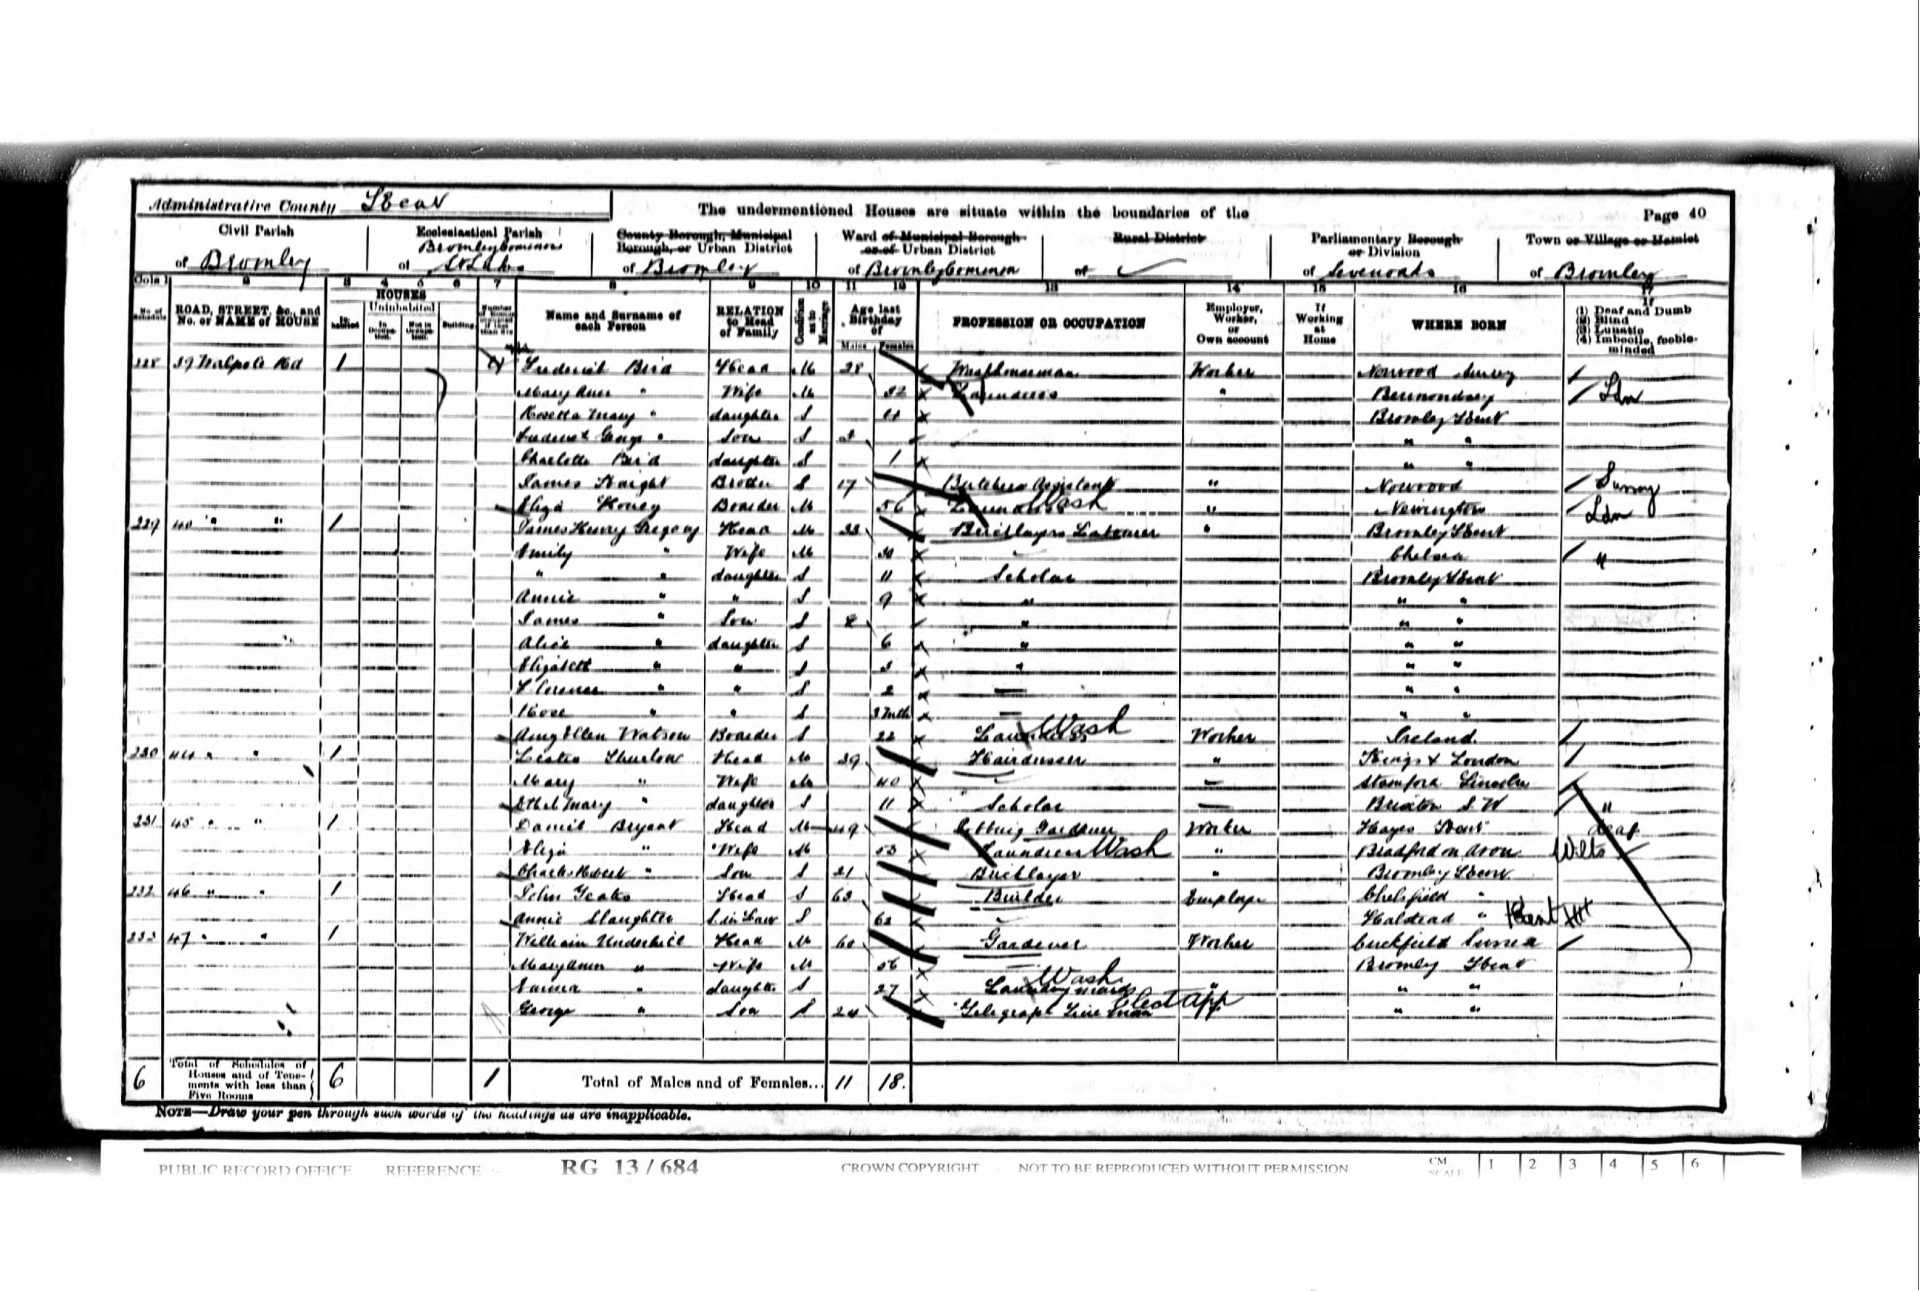 Administrative County Kent
The undermentioned Houses are situate within the boundaries of the
Page 40
Civil Parish
of Bromley
Ecclesiastical Parish
Bromley Common
of St Lukes
County Borough, Municipal
Borough, or Urban District
of Bromley
Ward of Municipal Borough
or of Urban District
of Bromley Common
Rural District
of
Parliamentary Borough
or Division
of Sevenoaks
Town or Village or Hamlet
of Bromley
Cols 1 2 3 4 5 6 7 8 9 10 11 12 13 14 15 16 17
No. of Schedule
ROAD, STREET, &c., and No. or NAME of HOUSE
HOUSES
Inhabited
Uninhabited
In Occupation
Not in Occupation
Building
Name and Surname of each Person
RELATION to Head of Family
Condition as to Marriage
Age last Birthday of
Males Females
PROFESSION OR OCCUPATION
Employer, Worker, or Own account
If Working at Home
WHERE BORN
If (1) Deaf and Dumb
(2) Blind
(3) Lunatic
(4) Imbecile, feeble-minded
228 39 Walpole Rd 1 4 Frederick Bird Head M 28 Worker Norwood Surrey
Mary Ann " Wife M 32 Laundress " Bermondsey Ldn
Rosetta Mary " daughter S Bromley Kent
Frederick George " Son S 3 " "
Charlotte Bird daughter S 1 " "
James Knight Brother S 17 Butchers Assistant " Norwood Surrey
Eliza Honey Boarder M 56 Laundress Wash " Newington Ldn
229 40 " " 1 James Henry Gregory Head M 33 Bricklayers Labourer " Bromley Kent
Emily " Wife M Chelsea "
" " daughter S 11 Scholar Bromley Kent
Annie " " S 9 " " "
James " Son S 8 " " "
Alice " daughter S 6 " " "
Elizabeth " " S 3 " " "
Florence " " S 2 — " "
Rose " " S 3 Mths — " "
Amy Ellen Watson Boarder S 22 Laundress Wash Worker Ireland
230 44 " " 1 Thurlow Head M 39 Hairdresser " Kings X London
Mary " Wife M 40 — Stamford Lincoln
Ethel Mary " daughter S 11 Scholar — Brixton S.W "
231 45 " " 1 Daniel Bryant Head M 49 Jobbing Gardener Worker Hayes Kent deaf
Eliza " Wife M 53 Laundress Wash " Bradford on Avon Wilts
Charles Robert " Son S 21 Bricklayer " Bromley Kent
232 46 " " 1 John Head 63 Builder Employer Chelsfield "
Annie Slaughter S in Law S 62 Halstead " Kent
233 47 " " 1 William Underhill Head M 60 Gardener Worker Cuckfield Sussex
Mary Ann " Wife M 56 — Bromley Kent
" daughter S 27 Laundry maid Wash " " "
George " Son S 24 Telegraph Line man Elect App " "
6 Total of Schedules of Houses and of Tenements with less than Five Rooms 6 1 Total of Males and of Females... 11 18
NOTE—Draw your pen through such words of the headings as are inapplicable.
PUBLIC RECORD OFFICE REFERENCE RG 13/684 CROWN COPYRIGHT NOT TO BE REPRODUCED WITHOUT PERMISSION CM SCALE 1 2 3 4 5 6